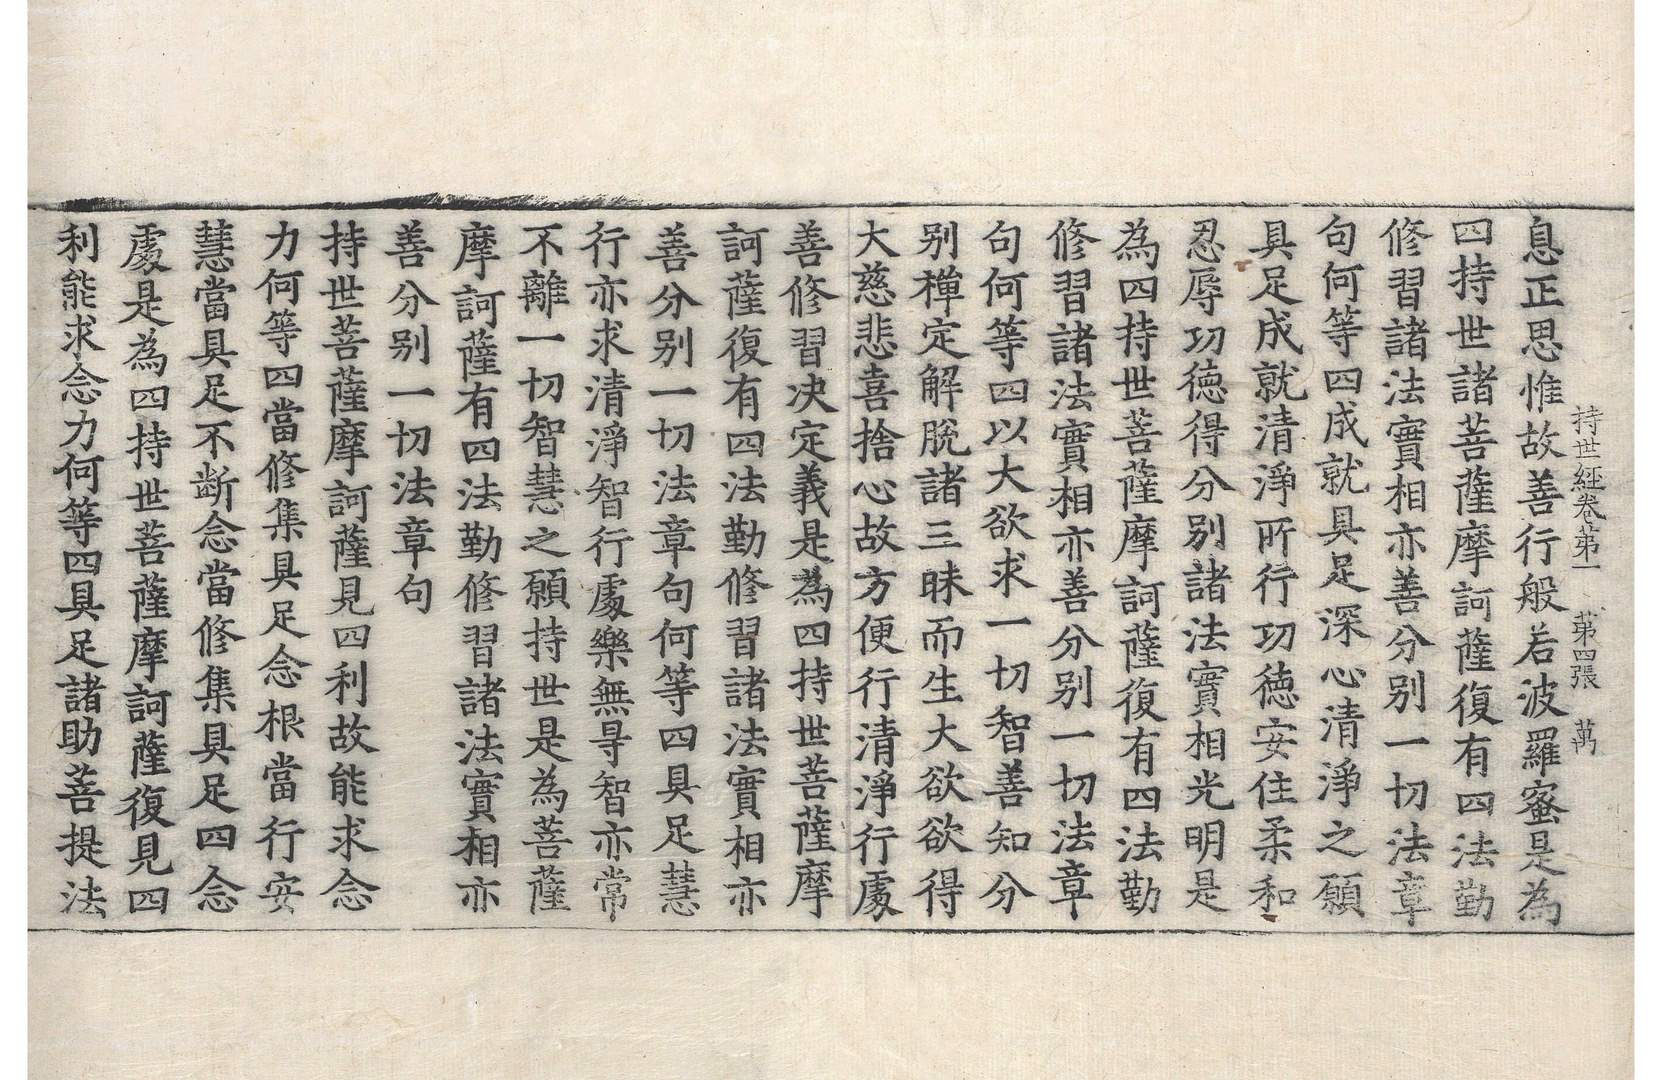 持世經卷第一　第四張　萬
息正思惟故善行般若波羅蜜是為
四持世諸菩薩摩訶薩復有四法勤
修習諸法實相亦善分別一切法章
句何等四成就具足深心清淨之願
具足成就清淨所行功德安住柔和
忍辱功德得分別諸法實相光明是
為四持世菩薩摩訶薩復有四法勤
修習諸法實相亦善分別一切法章
句何等四以大欲求一切智善知分
別禪定解脫諸三昧而生大欲欲得
大慈悲喜捨心故方便行清淨行處
善修習决定義是為四持世菩薩摩
訶薩復有四法勤修習諸法實相亦
善分別一切法章句何等四具足慧
行亦求清淨智行處樂無㝵智亦常
不離一切智慧之願持世是為菩薩
摩訶薩有四法勤修習諸法實相亦
善分別一切法章句
持世菩薩摩訶薩見四利故能求念
力何等四當修集具足念根當行安
慧當具足不斷念當修集具足四念
處是為四持世菩薩摩訶薩復見四
利能求念力何等四具足諸助菩提法